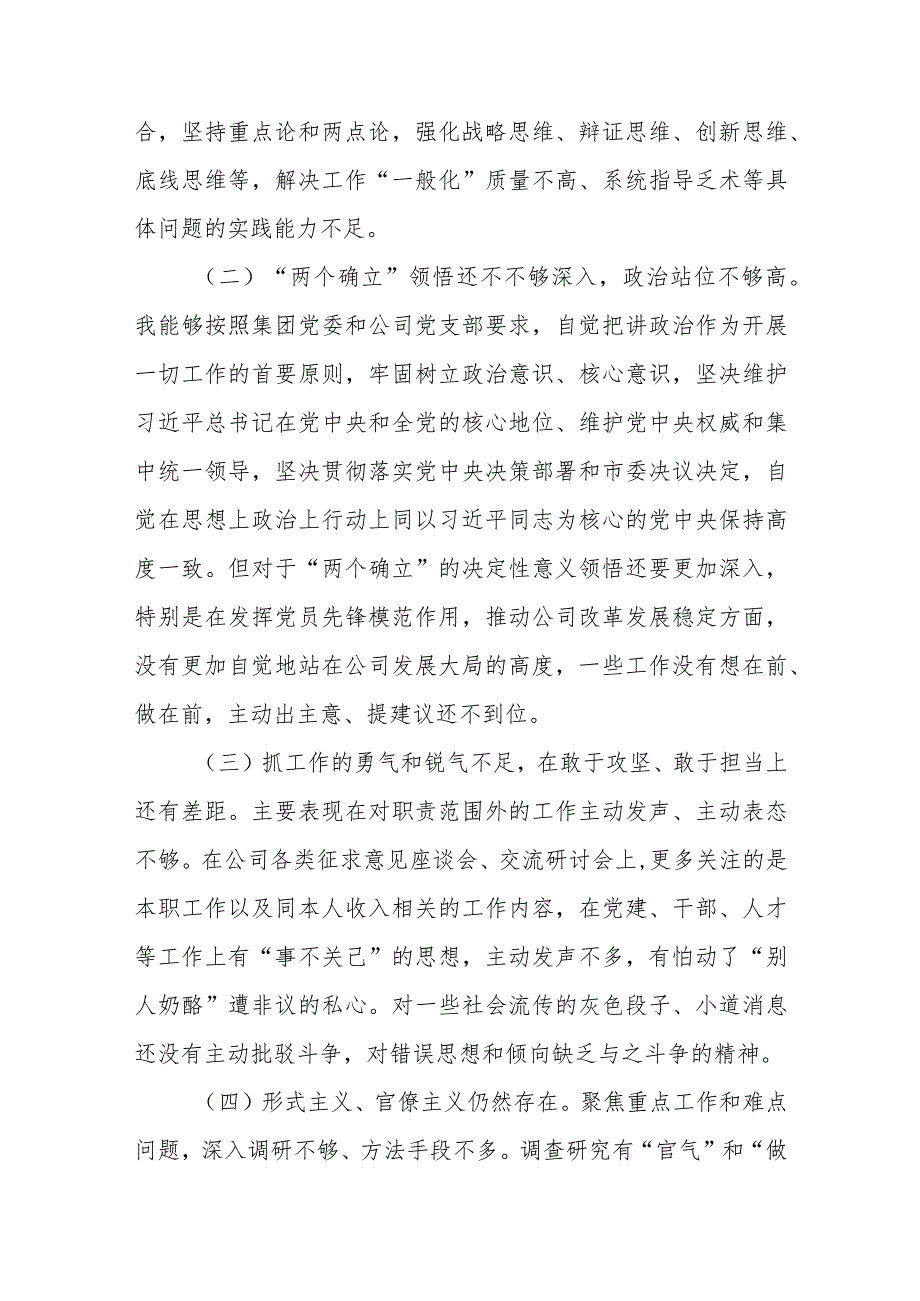 合，坚持重点论和两点论，强化战略思维、辩证思维、创新思维、
底线思维等，解决工作“一般化”质量不高、系统指导乏术等具
体问题的实践能力不足。
（二）“两个确立”领悟还不不够深入，政治站位不够高。
我能够按照集团党委和公司党支部要求，自觉把讲政治作为开展
一切工作的首要原则，牢固树立政治意识、核心意识，坚决维护
习近平总书记在党中央和全党的核心地位、维护党中央权威和集
中统一领导，坚决贯彻落实党中央决策部署和市委决议决定，自
觉在思想上政治上行动上同以习近平同志为核心的党中央保持高
度一致。但对于“两个确立”的决定性意义领悟还要更加深入，
特别是在发挥党员先锋模范作用，推动公司改革发展稳定方面，
没有更加自觉地站在公司发展大局的高度，一些工作没有想在前、
做在前，主动出主意、提建议还不到位。
（三）抓工作的勇气和锐气不足，在敢于攻坚、敢于担当上
还有差距。主要表现在对职责范围外的工作主动发声、主动表态
不够。在公司各类征求意见座谈会、交流研讨会上,更多关注的是
本职工作以及同本人收入相关的工作内容，在党建、干部、人才
等工作上有“事不关己”的思想，主动发声不多，有怕动了“别
人奶酪”遭非议的私心。对一些社会流传的灰色段子、小道消息
还没有主动批驳斗争，对错误思想和倾向缺乏与之斗争的精神。
（四）形式主义、官僚主义仍然存在。聚焦重点工作和难点
问题，深入调研不够、方法手段不多。调查研究有“官气”和“做